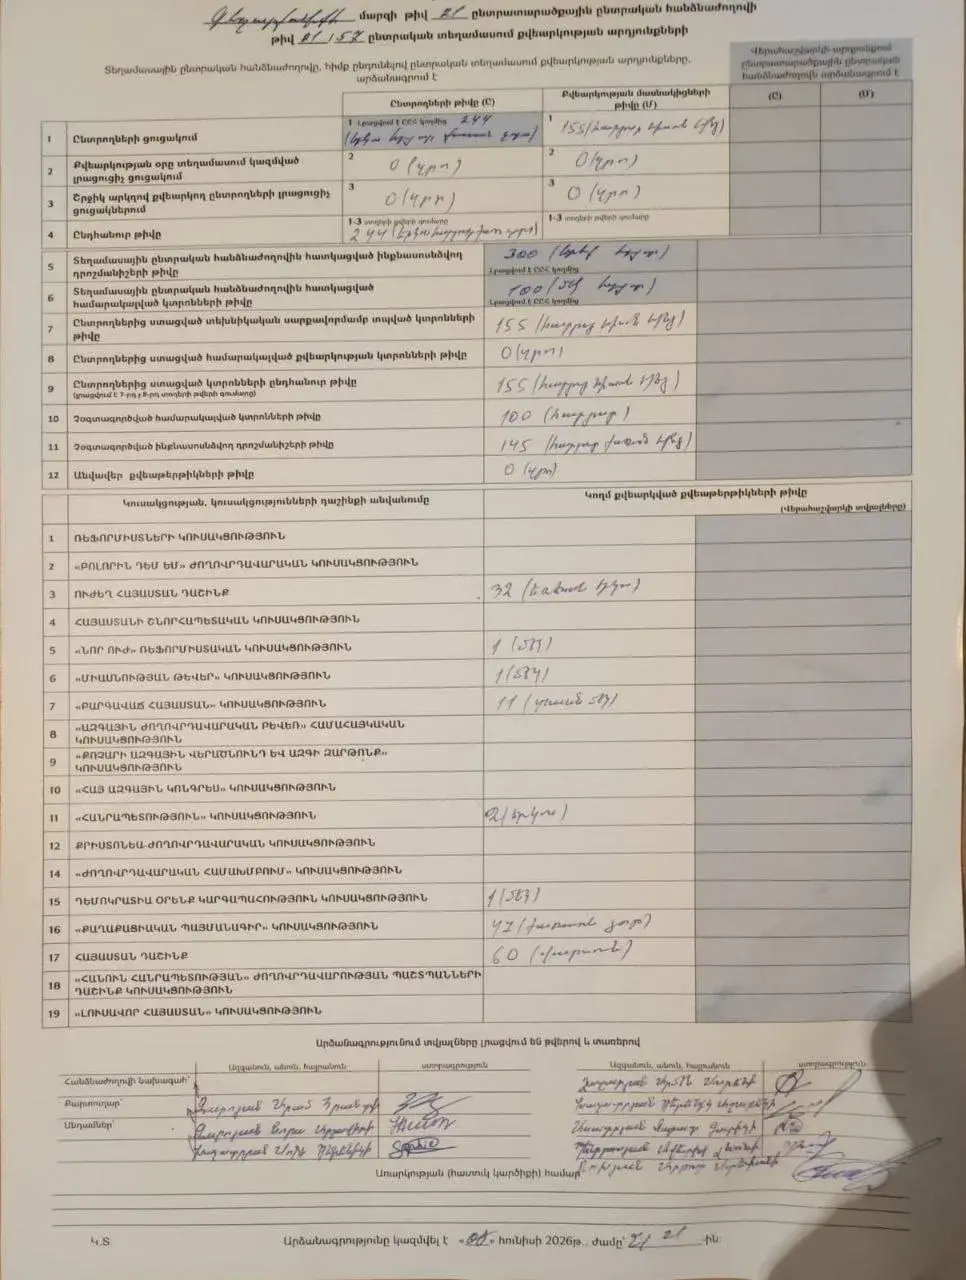 Գեղարքունիքի մարզի թիվ 21 ընտրատարածքային ընտրական հանձնաժողովի
թիվ 21/57 ընտրական տեղամասում քվեարկության արդյունքների
Տեղամասային ընտրական հանձնաժողովը, հիմք ընդունելով ընտրական տեղամասում քվեարկության արդյունքները,
արձանագրում է
Վերահաշվարկի արդյունքում
ընտրատարածքային ընտրական
հանձնաժողովն արձանագրում է
Ընտրողների թիվը (Ը)
Քվեարկության մասնակիցների
թիվը (Մ)
(Ը)
(Մ)
1 Ընտրողների ցուցակում
1 Լրացվում է ԸԸՀ կողմից 244
1 155 (հարյուր հիսուն հինգ)
2 Քվեարկության օրը տեղամասում կազմված
լրացուցիչ ցուցակում
2 0 (զրո)
2 0 (զրո)
3 Շրջիկ արկղով քվեարկող ընտրողների լրացուցիչ
ցուցակներում
3 0 (զրո)
3 0 (զրո)
4 Ընդհանուր թիվը
1-3 տողերի թվերի գումարը
244
1-3 տողերի թվերի գումարը
5 Տեղամասային ընտրական հանձնաժողովին հատկացված ինքնասոսնձվող
դրոշմանիշերի թիվը
300 (երեք հարյուր)
Լրացվում է ԸԸՀ կողմից
6 Տեղամասային ընտրական հանձնաժողովին հատկացված
համարակալված կտրոնների թիվը
100 (մեկ հարյուր)
Լրացվում է ԸԸՀ կողմից
7 Ընտրողներից ստացված տեխնիկական սարքավորմամբ տպված կտրոնների
թիվը
155 (հարյուր հիսուն հինգ)
8 Ընտրողներից ստացված համարակալված քվեարկության կտրոնների թիվը
0 (զրո)
9 Ընտրողներից ստացված կտրոնների ընդհանուր թիվը
(լրացվում է 7-րդ և 8-րդ տողերի թվերի գումարը)
155 (հարյուր հիսուն հինգ)
10 Չօգտագործված համարակալված կտրոնների թիվը
100 (հարյուր)
11 Չօգտագործված ինքնասոսնձվող դրոշմանիշերի թիվը
145 (հարյուր քառասուն հինգ)
12 Անվավեր քվեաթերթիկների թիվը
0 (զրո)
Կուսակցության, կուսակցությունների դաշինքի անվանումը
Կողմ քվեարկված քվեաթերթիկների թիվը
(Վերահաշվարկի տվյալները)
1 ՌԵՖՈՐՄԻՍՏՆԵՐԻ ԿՈՒՍԱԿՑՈՒԹՅՈՒՆ
2 «ԲՈԼՈՐԻՆ ԴԵՄ ԵՄ» ԺՈՂՈՎՐԴԱՎԱՐԱԿԱՆ ԿՈՒՍԱԿՑՈՒԹՅՈՒՆ
3 ՈՒԺԵՂ ՀԱՅԱՍՏԱՆ ԴԱՇԻՆՔ
32 (երեսուն երկու)
4 ՀԱՅԱՍՏԱՆԻ ՇՆՈՐՀԱՊԵՏԱԿԱՆ ԿՈՒՍԱԿՑՈՒԹՅՈՒՆ
5 «ՆՈՐ ՈՒԺ» ՌԵՖՈՐՄԻՍՏԱԿԱՆ ԿՈՒՍԱԿՑՈՒԹՅՈՒՆ
1 (մեկ)
6 «ՄԻԱՍՆՈՒԹՅԱՆ ԹԵՎԵՐ» ԿՈՒՍԱԿՑՈՒԹՅՈՒՆ
1 (մեկ)
7 «ԲԱՐԳԱՎԱՃ ՀԱՅԱՍՏԱՆ» ԿՈՒՍԱԿՑՈՒԹՅՈՒՆ
11 (տասն մեկ)
8 «ԱԶԳԱՅԻՆ ԺՈՂՈՎՐԴԱՎԱՐԱԿԱՆ ԲԵՎԵՌ» ՀԱՄԱՀԱՅԿԱԿԱՆ
ԿՈՒՍԱԿՑՈՒԹՅՈՒՆ
9 «ՔՈՉԱՐԻ ԱԶԳԱՅԻՆ ՎԵՐԱԾՆՈՒՆԴ ԵՎ ԱԶԳԻ ԶԱՐԹՈՆՔ»
ԿՈՒՍԱԿՑՈՒԹՅՈՒՆ
10 «ՀԱՅ ԱԶԳԱՅԻՆ ԿՈՆԳՐԵՍ» ԿՈՒՍԱԿՑՈՒԹՅՈՒՆ
11 «ՀԱՆՐԱՊԵՏՈՒԹՅՈՒՆ» ԿՈՒՍԱԿՑՈՒԹՅՈՒՆ
2 (երկու)
12 ՔՐԻՍՏՈՆԵԱ-ԺՈՂՈՎՐԴԱՎԱՐԱԿԱՆ ԿՈՒՍԱԿՑՈՒԹՅՈՒՆ
14 «ԺՈՂՈՎՐԴԱՎԱՐԱԿԱՆ ՀԱՄԱԽՄԲՈՒՄ» ԿՈՒՍԱԿՑՈՒԹՅՈՒՆ
15 ԴԵՄՈԿՐԱՏԻԱ ՕՐԵՆՔ ԿԱՐԳԱՊԱՀՈՒԹՅՈՒՆ ԿՈՒՍԱԿՑՈՒԹՅՈՒՆ
1 (մեկ)
16 «ՔԱՂԱՔԱՑԻԱԿԱՆ ՊԱՅՄԱՆԱԳԻՐ» ԿՈՒՍԱԿՑՈՒԹՅՈՒՆ
47 (քառասուն յոթ)
17 ՀԱՅԱՍՏԱՆ ԴԱՇԻՆՔ
60 (վաթսուն)
18 «ՀԱՆՈՒՆ ՀԱՆՐԱՊԵՏՈՒԹՅԱՆ» ԺՈՂՈՎՐԴԱՎԱՐՈՒԹՅԱՆ ՊԱՇՏՊԱՆՆԵՐԻ
ԴԱՇԻՆՔ ԿՈՒՍԱԿՑՈՒԹՅՈՒՆ
19 «ԼՈՒՍԱՎՈՐ ՀԱՅԱՍՏԱՆ» ԿՈՒՍԱԿՑՈՒԹՅՈՒՆ
Արձանագրությունում տվյալները լրացվում են թվերով և տառերով
Ազգանուն, անուն, հայրանուն
ստորագրություն
Ազգանուն, անուն, հայրանուն
ստորագրություն
Հանձնաժողովի նախագահ՝
Քարտուղար՝
Անդամներ՝
Առարկության (հատուկ կարծիքի) համար
Կ.Տ.
Արձանագրությունը կազմվել է «08» հունիսի 2026թ., ժամը՝ 21 21 -ին: